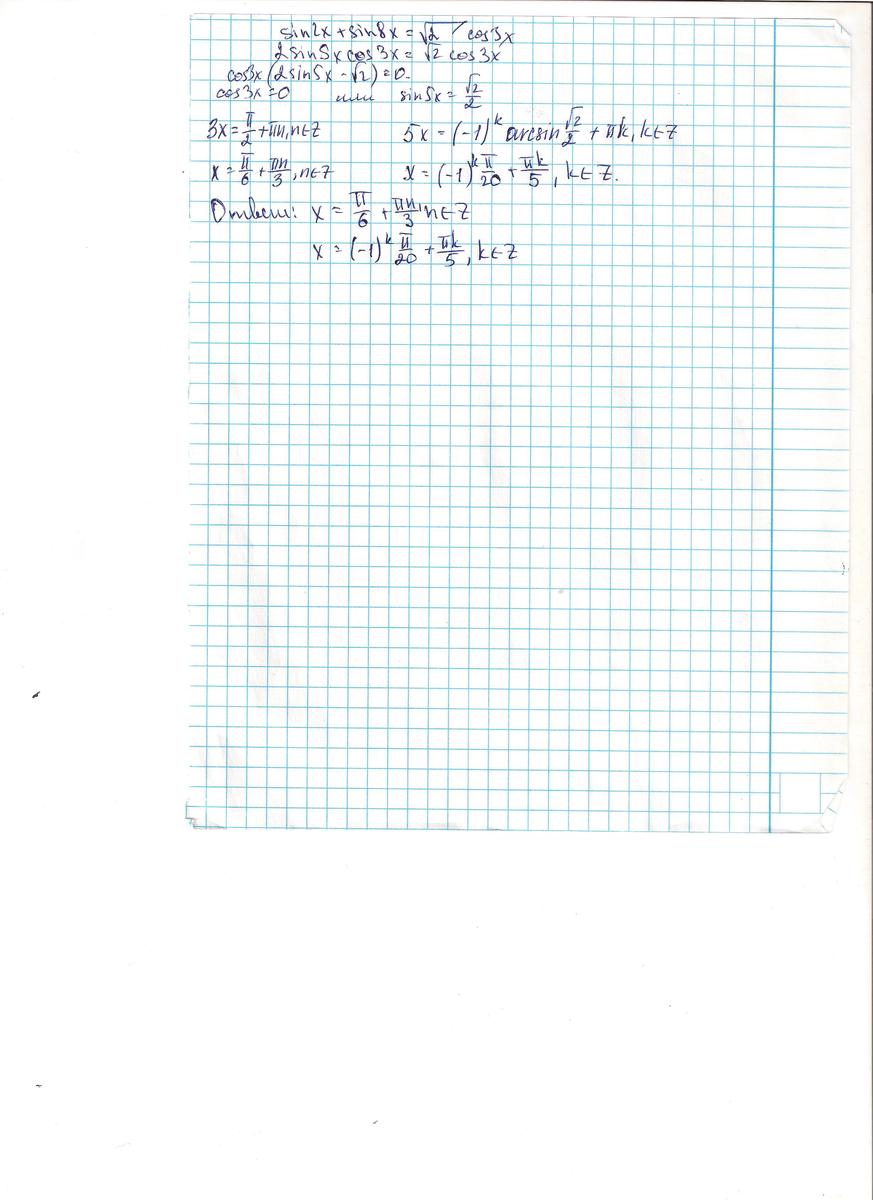 sin2x + sin8x = √2 cos3x
2sin5x cos3x = √2 cos3x
cos3x(2sin5x - √2) = 0.
cos3x = 0 или sin5x = √2/2
3x = π/2 + πn, n∈Z 5x = (-1)^k arcsin √2/2 + πk, k∈Z
x = π/6 + πn/3, n∈Z x = (-1)^k π/20 + πk/5, k∈Z.
Ответ: x = π/6 + πn/3, n∈Z
x = (-1)^k π/20 + πk/5, k∈Z